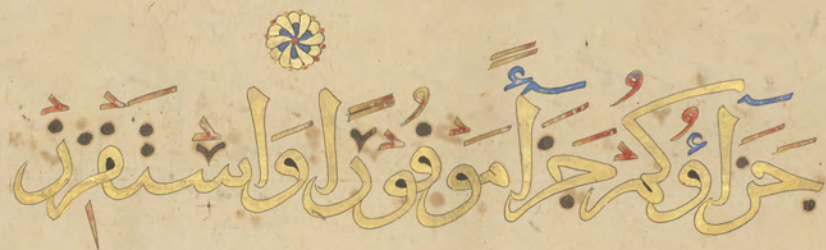 جَزَآؤُكُمْ جَزَآءً مَوْفُورًا وَاسْتَفْزِزْ